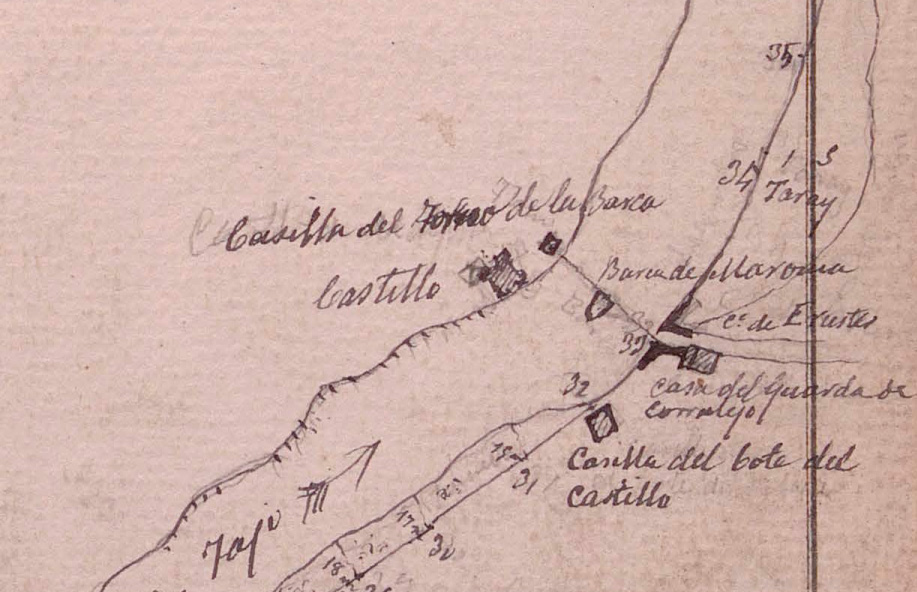 35
34
1 3
Taray
Casilla del de la Barca
Castillo
Barca de Maroma
Co de Erustes
33
Casa del Guarda de
Corralejo
32
Casilla del bote del
Castillo
15m
31
17m
30
Tajo
18m